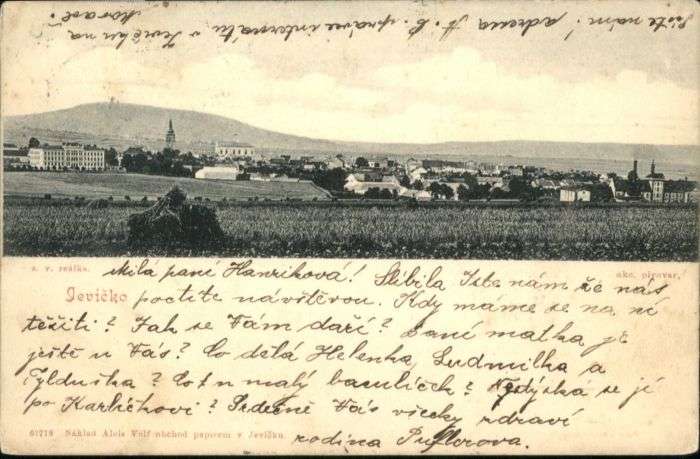 Pište nám! adresa A. P. správce internátu v Jevíčku na
Moravě.
z. v. reálka.
akc. pivovar.
Jevíčko
Milá paní Hanriková! Slíbila Jste nám že nás
poctíte návštěvou. Kdy máme se na ní
těšiti? Jak se Vám daří? Paní matka je
ještě u Vás? Co dělá Helenka, Ludmilka a
Tylduška? Co malý baculích? Nestýská se jí
po Karlíčkovi? Srdečně Vás všecky zdraví
rodina
61218 Náklad Alois Völf obchod papírem v Jevíčku